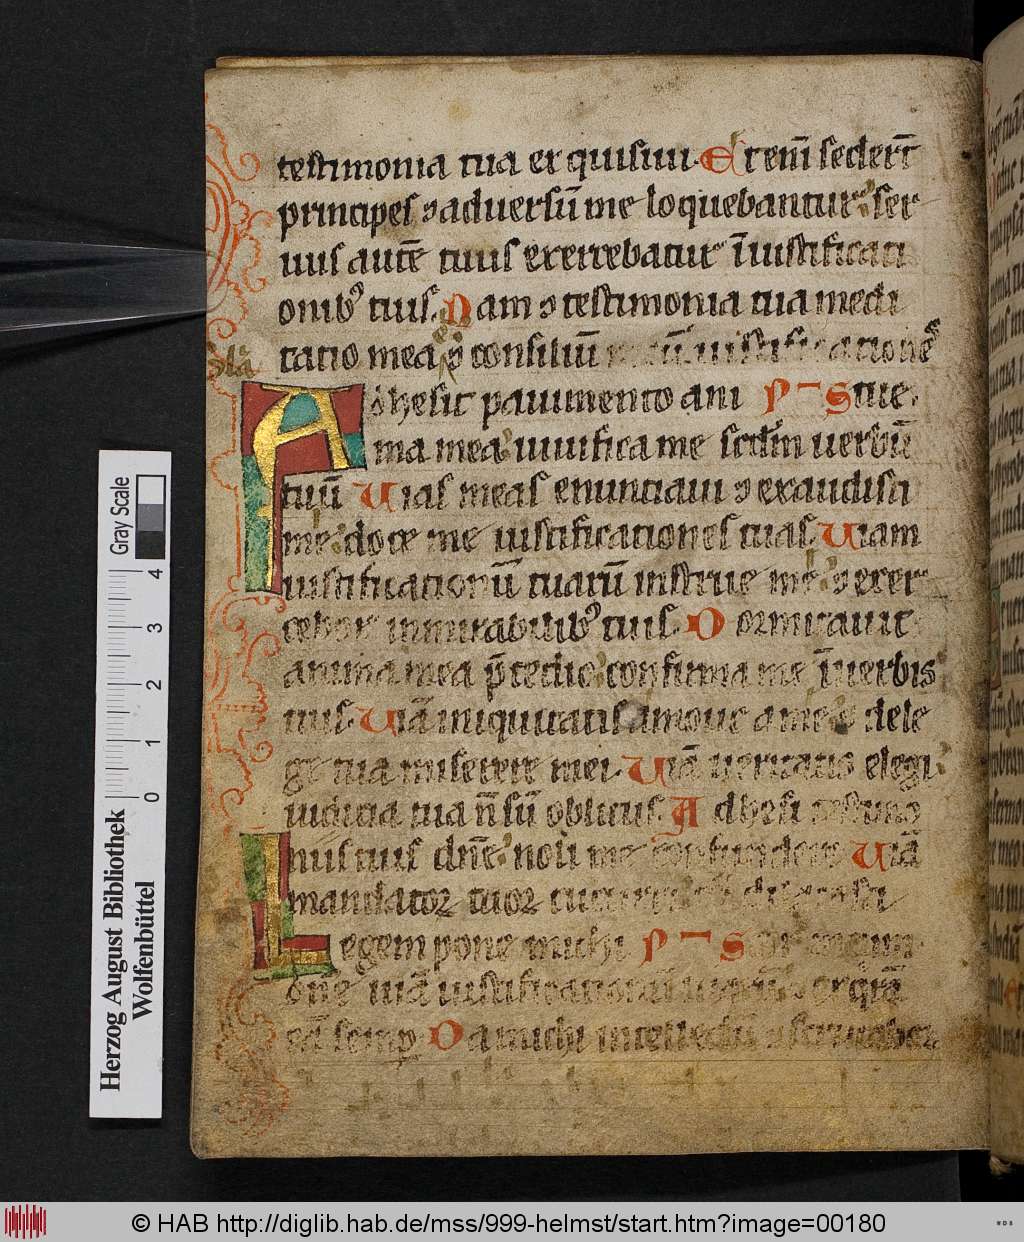 testimonia tua exquisiui. Etenī sederūt
principes ⁊ aduersū me loquebantur ser
uus autē tuus exercebatur ī iustificati
onibꝰ tuis. Nam ⁊ testimonia tua medi
tatio mea ⁊ consiliū meū iustificationes
Adhesit pauimento ani P̄S tue.
ma mea uiuifica me scdm uerbū
tuū Uias meas enunciaui ⁊ exaudisti
me doce me iustificationes tuas Uiam
iustificationū tuarū instrue me ⁊ exer
cebor in mirabilibꝰ tuis. Dormitauit
anima mea p̄ tedio confirma me ī uerbis
tuis. Uiā iniquitatis amoue a me ⁊ de lege
ge tua miserere mei. Uiā ueritatis elegi
iudicia tua nō sū oblitus. Adhesi testimo
niis tuis dn̄e noli me confundere Uiā
mandatoꝝ tuoꝝ cucurri
Legem pone michi P̄S
one uiā iustificationū tuarū ⁊ exquirā
eā semꝑ Da michi intellectū ⁊ scrutabor
Gray Scale
0 1 2 3 4
Herzog August Bibliothek
Wolfenbüttel
© HAB http://diglib.hab.de/mss/999-helmst/start.htm?image=00180